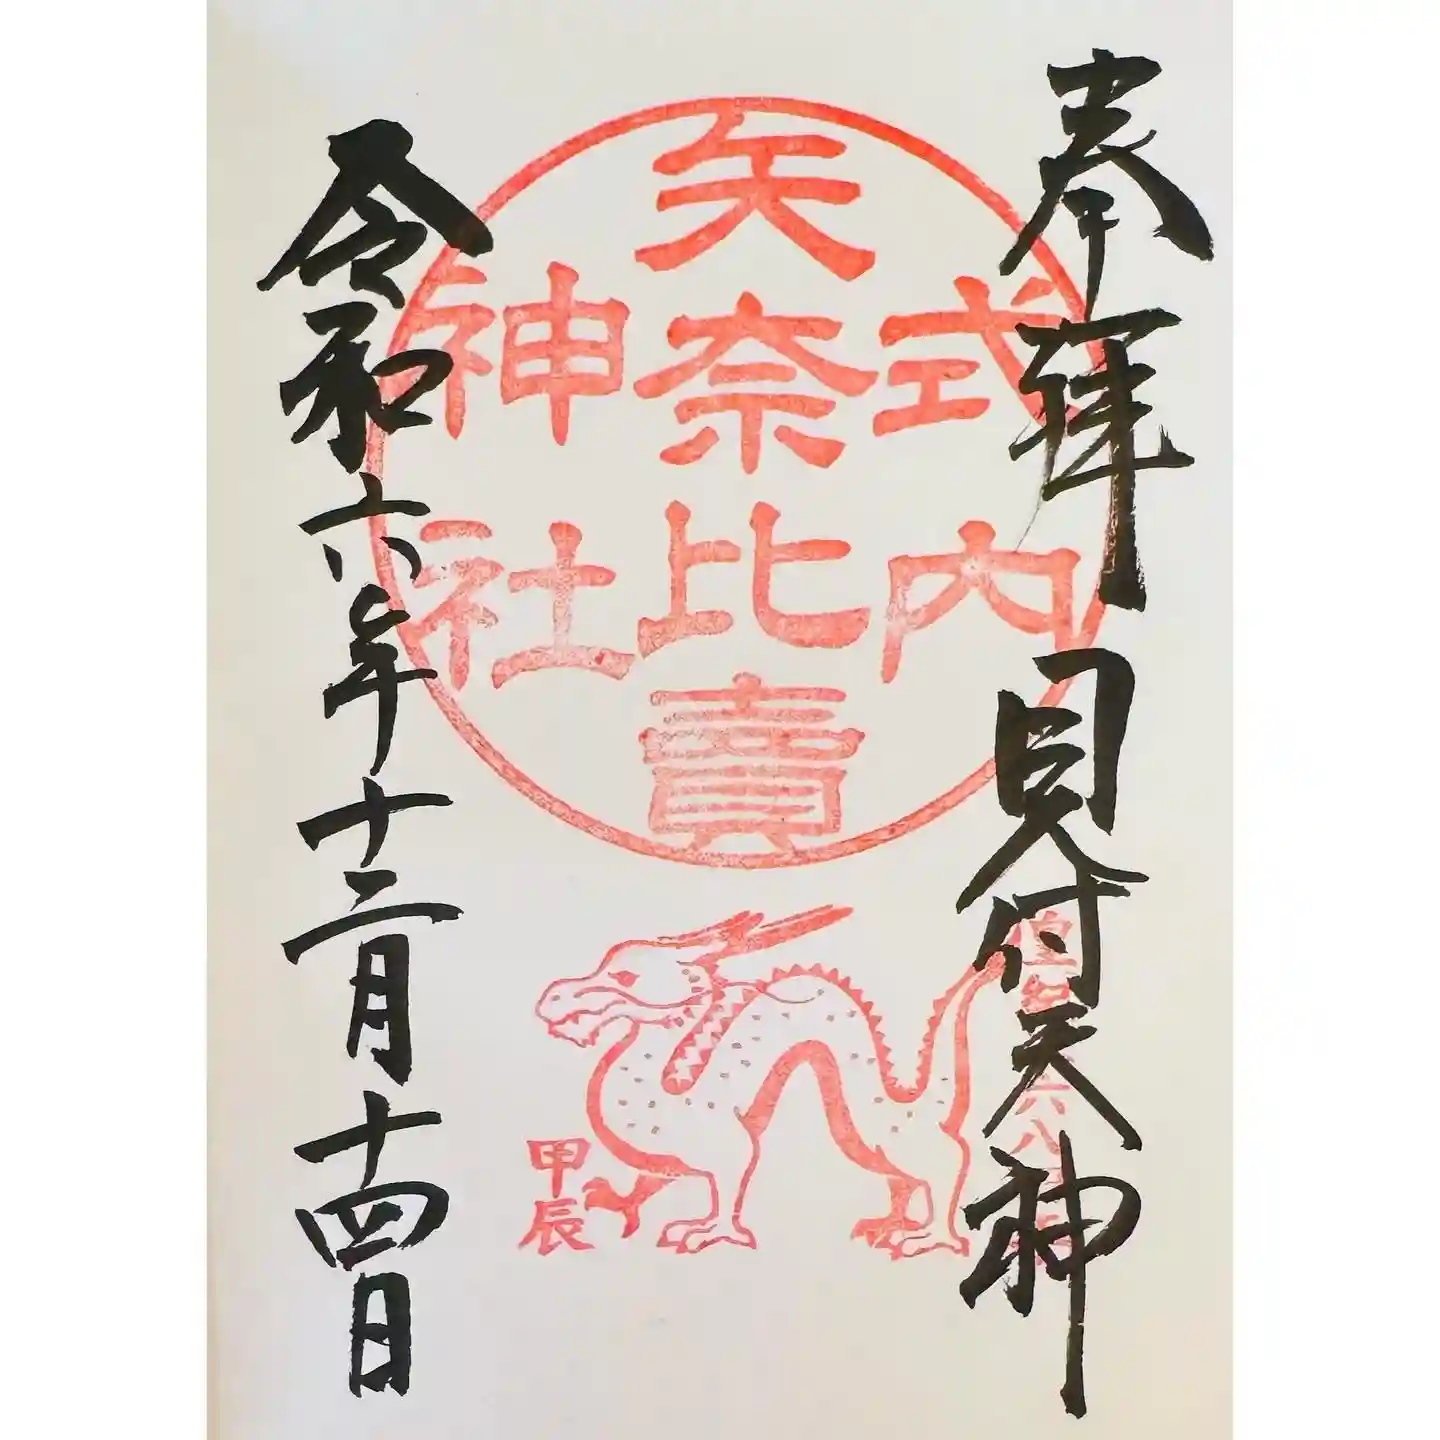 奉拝 見付天神
式内
矢奈比賣
神社
甲辰
令和六年十二月十四日